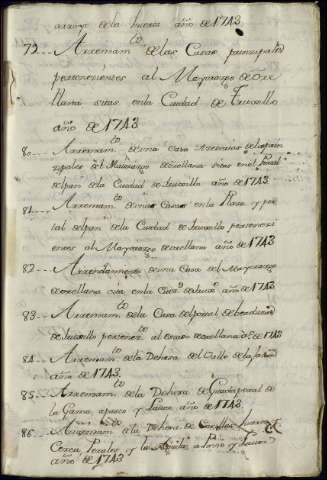 arrimo de la huerta año de 1743
79... Arrendam.to de las Casas principales
pertenecientes al Mayorazgo de Ore
llana sitas en la Ciudad de Truxillo
año de 1743
80... Arrendam.to de una Casa accesoria de las prin
zipales del Maiorazgo de orellana sitas en el Portal
del pan de la Ciudad de truxillo año de 1743
81... Arrendam.to de unas Casas en la Plaza y por
tal del pan de la Ciudad de truxillo pertenezi
entes al Mayorazgo de orellana año de 1743
82... Arrendamiento de una Casa del Mayorazgo
de orellana sita en la Ciu.d de trux.o año de 1743
83... Arrendam.to de la Casa del portal de
de truxillo al de orellana de 1743
84... Arrendam.to de la Dehesa del Valle de la
año de 1743
85... Arrendam.to de la Dehesa de
la Gama, apasto y Lavor año de 1743
86... Arrendam.to de la Dehesa de
Cerca, Perales y la a Pasto y Lavor
año de 1743